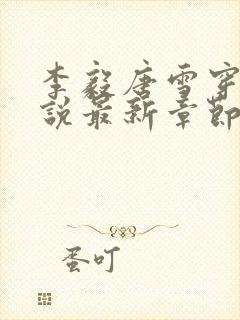 李毅唐雪穿
說最新章節
蛋叮